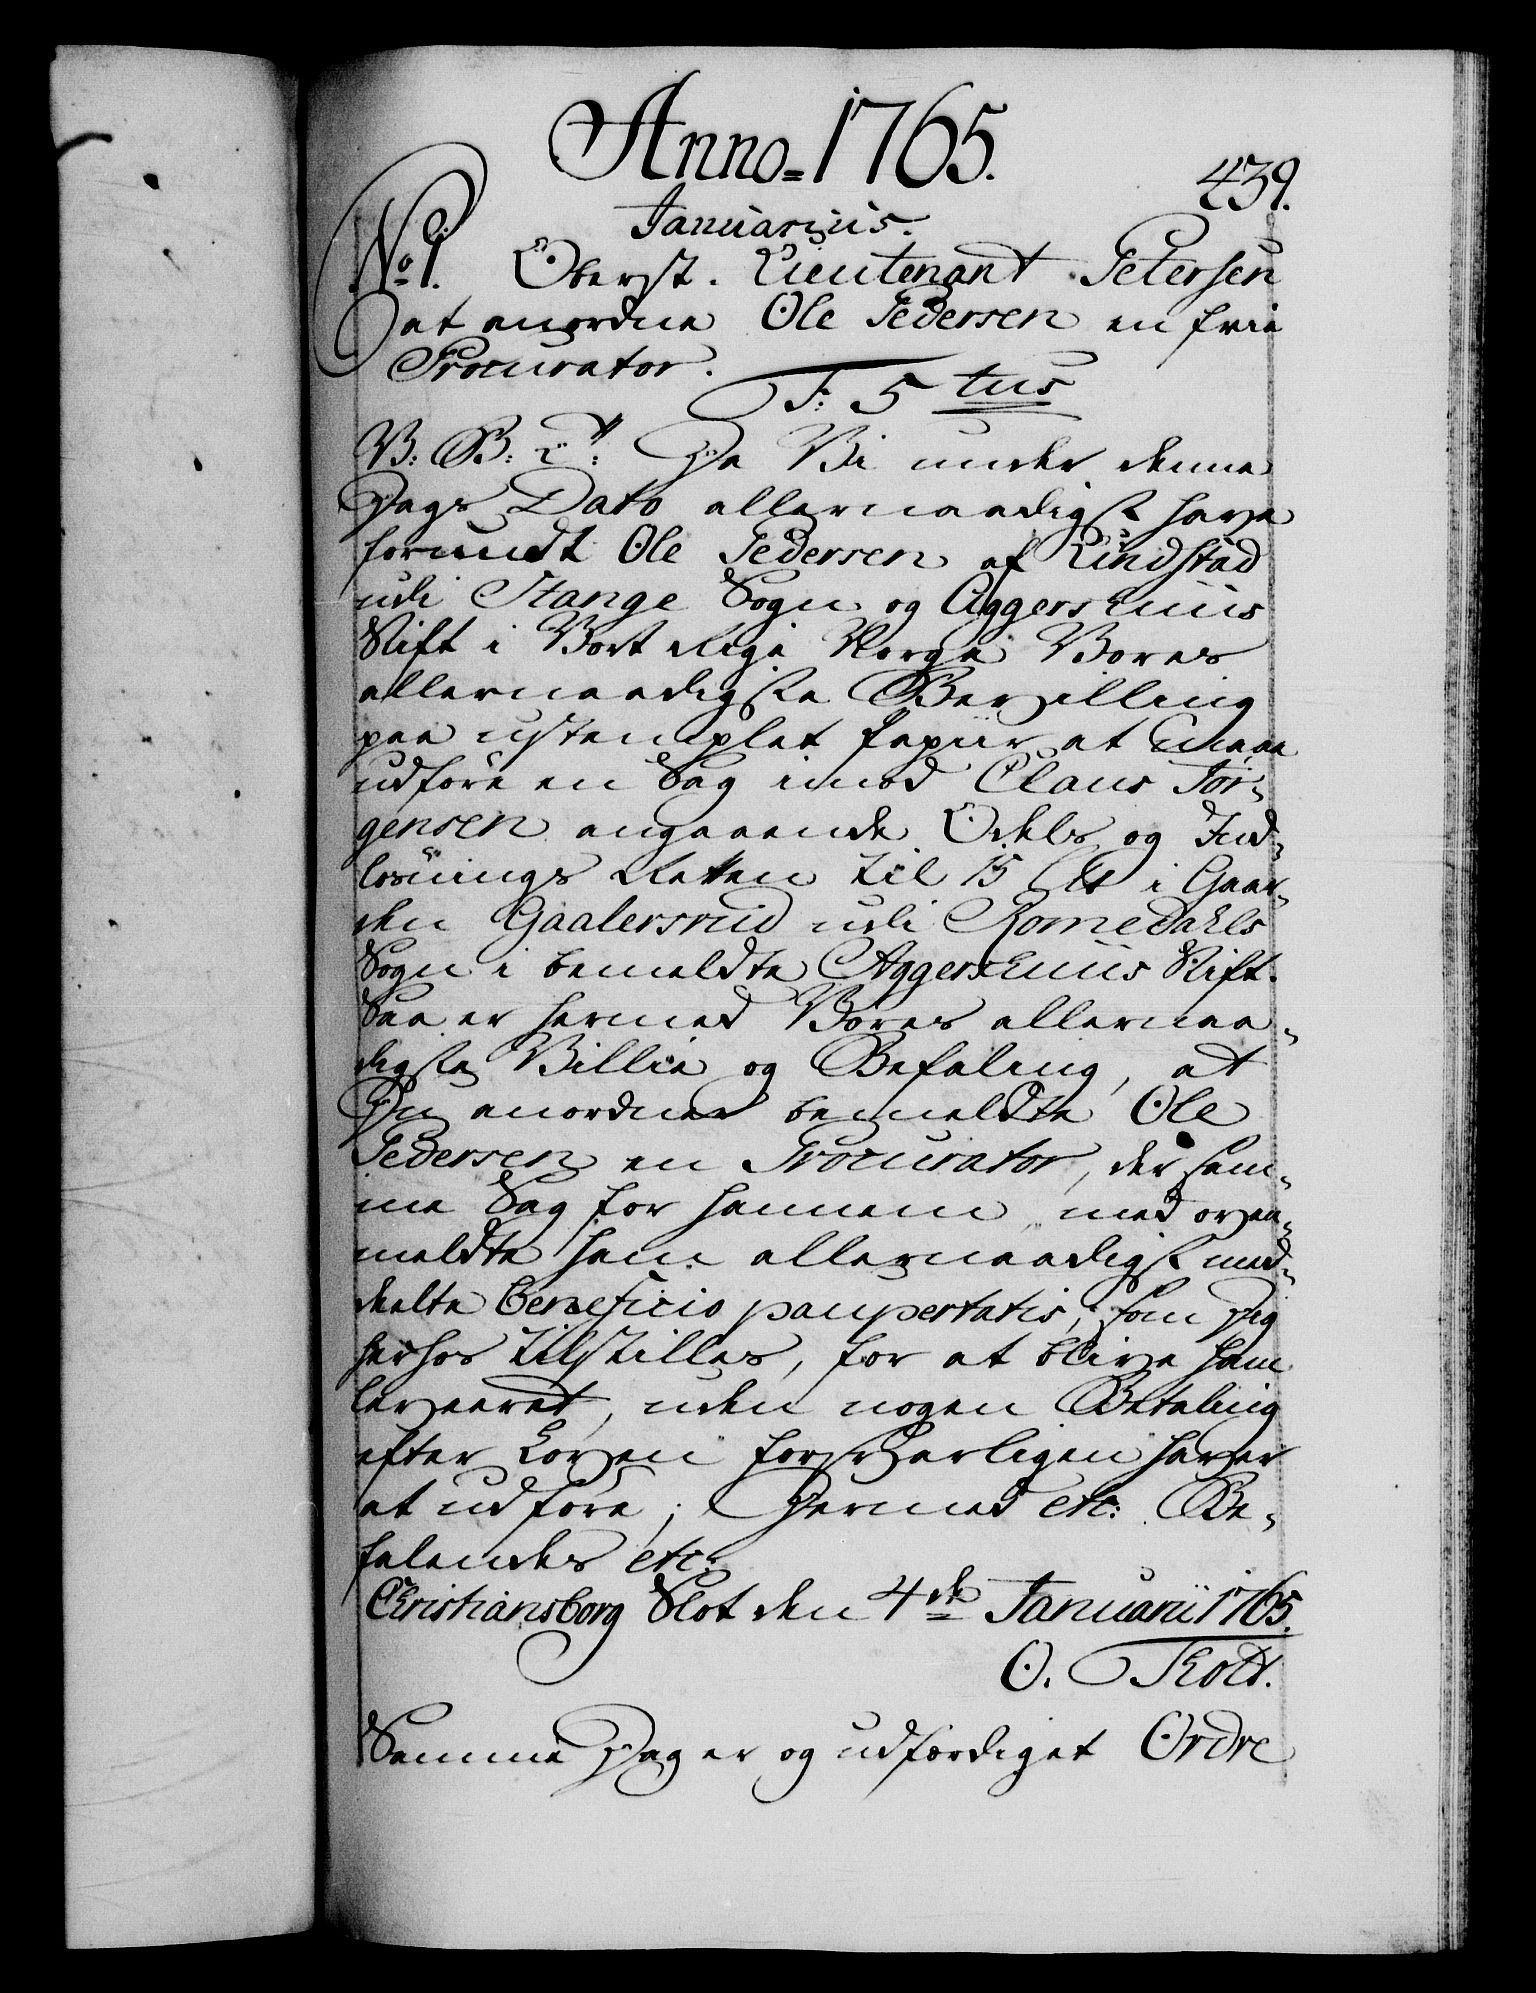 Anno=1765.
439.
Januarius.
No 1. Oberst-Lieutenant Petersen
at anordne Ole Pedersen en frie
Procurator.
F: 5tus
V: G: T: Da Vi under denne
Dags Dato allernaadigst have
forundt Ole Pedersen af Lindstad
udi Stange Sogn og Aggershuus
Stift i Vort Rige Norge Vores
allernaadigste Bevilling
paa ustemplet Papiir at maae
udføre en Sag imod Claus Jør-
gensen angaaende Odels og Ind-
løsnings Retten til 15 i Gaar-
den Gaalersrud udi Romedahls
Sogn i bemeldte Aggershuus Stift.
Saa er hermed Vores allernaa-
digste Villie og Befaling, at
Du anordner bemeldte Ole
Pedersen en Procurator, der sam-
me Sag for hannem med ovan-
meldte ham allernaadigst med-
deelte beneficio paupertatis, som Dig
herhos tilstilles, for at blive ham
leveeret, uden nogen Betaling
efter Loven forsvarligen haver
at udføre; Dermed etc: Be-
falendes etc:
Christiansborg Slot den 4de Januarii 1765.
O. Thott.
Samme Dag er og udfærdiget Ordre